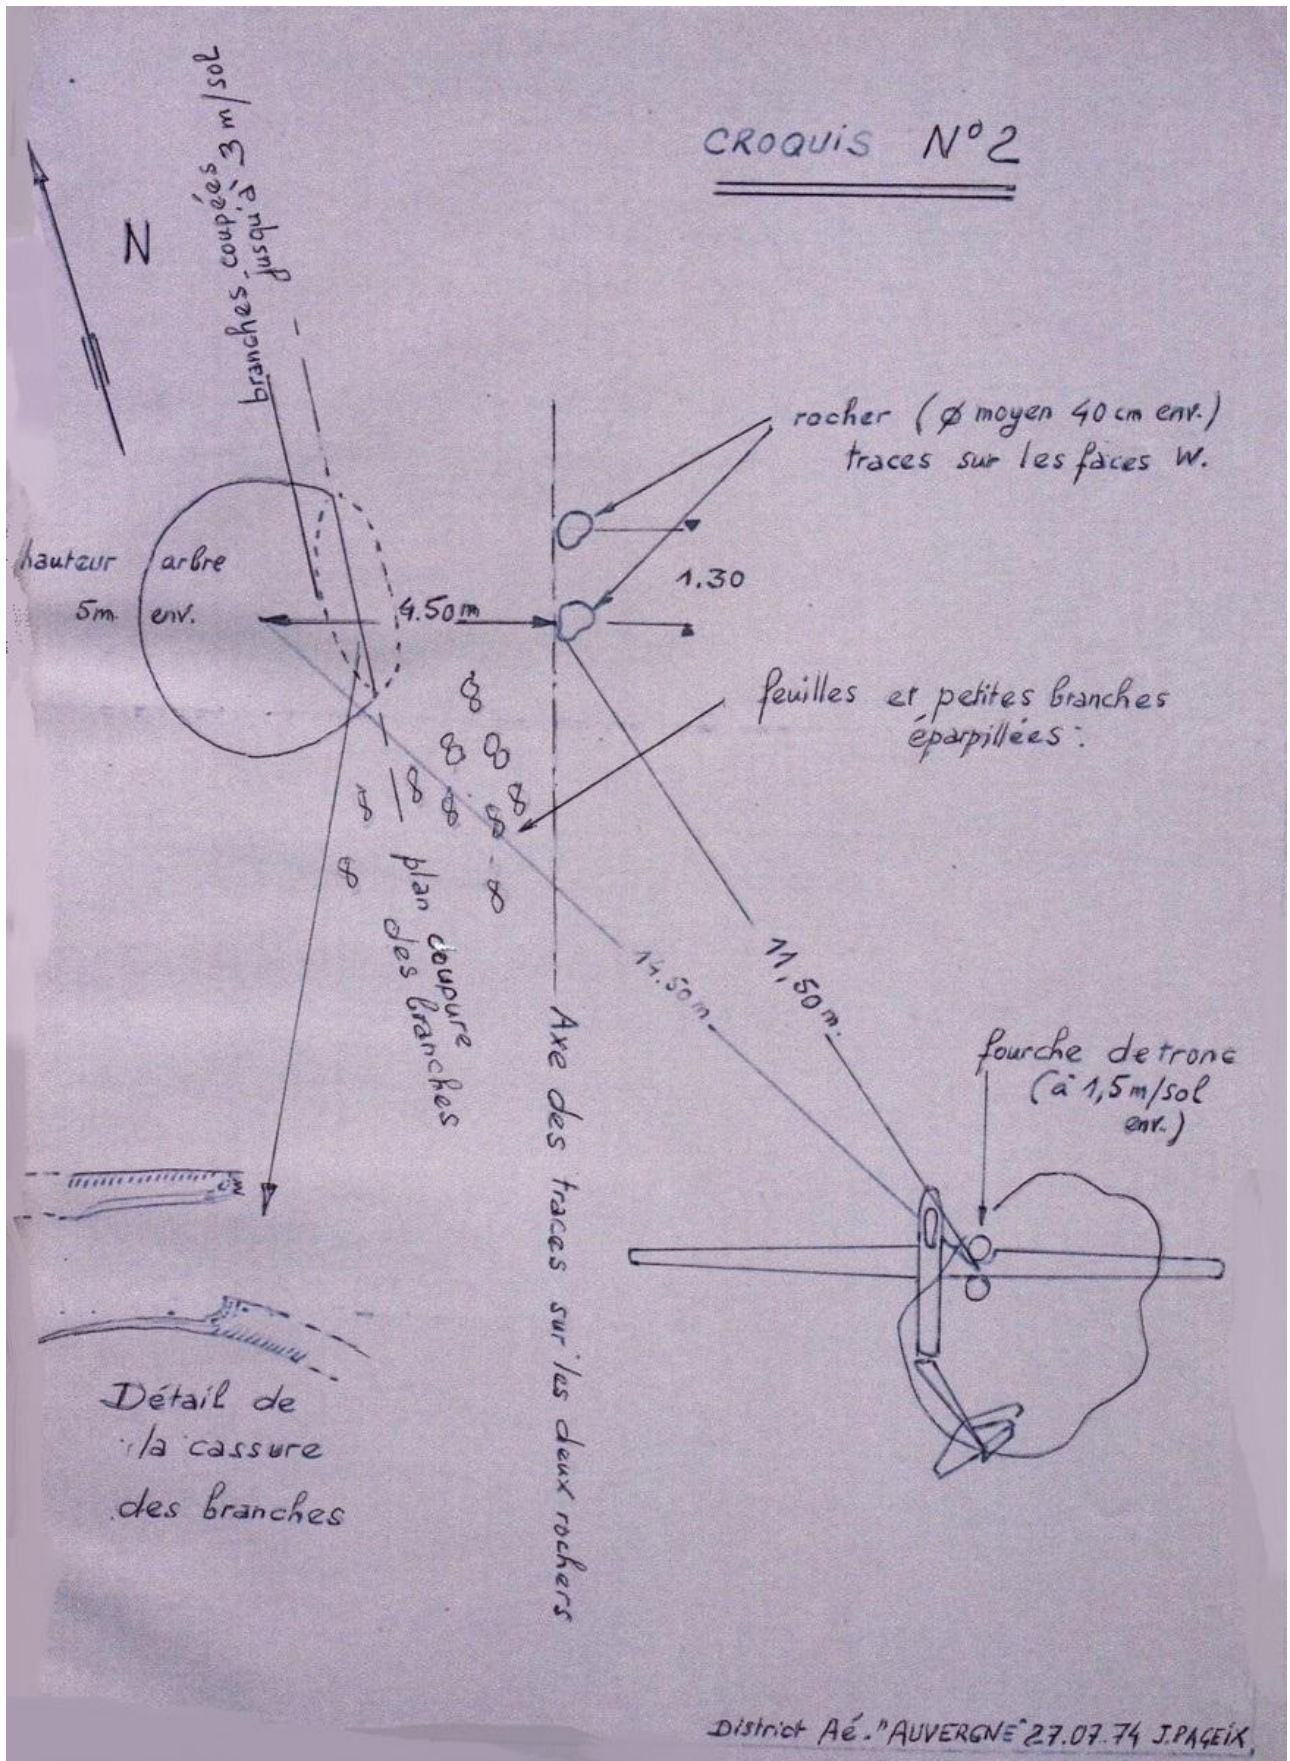 CROQUIS N° 2
N
branches coupées
jusqu'à 3 m/sol
rocher (ø moyen 40 cm env.)
traces sur les faces W.
hauteur arbre
5m env.
4.50m
1.30
feuilles et petites branches
éparpillées :
plan coupure
des branches
14.50m
11,50m.
fourche de tronc
(à 1,5m/sol
env.)
Axe des traces sur les deux rochers
Détail de
la cassure
des branches
District Aé. "AUVERGNE" 27.07.74 J.PAGEIX.